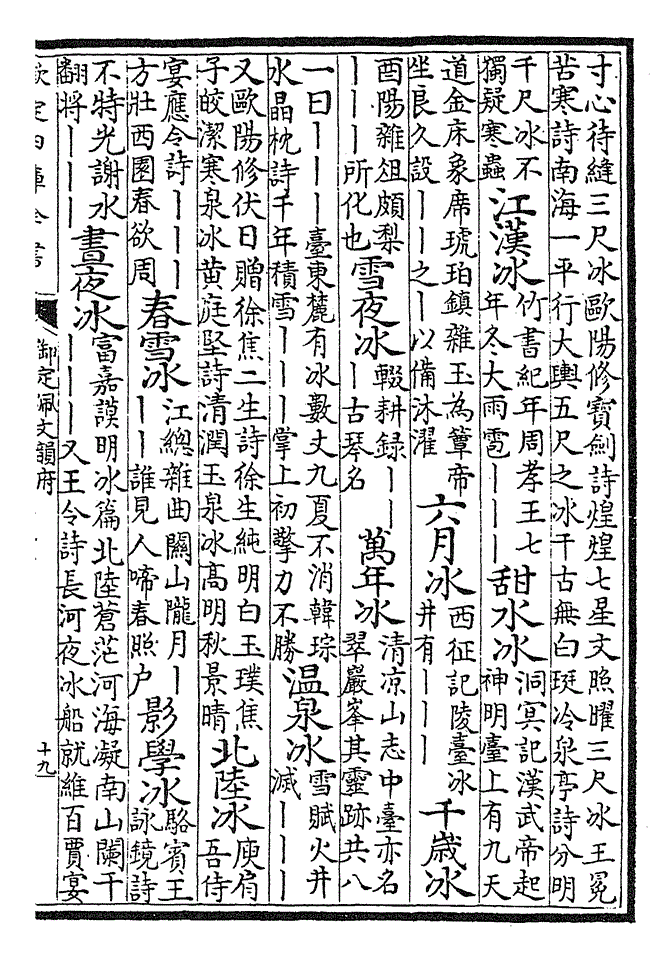 寸心待縫三尺冰歐陽修寳劍詩煌煌七星文照曜三尺冰王冕
苦寒詩南海一平行大輿五尺之冰千古無白珽冷泉亭詩分明
千尺冰不
獨疑寒蟲
江漢冰
竹書紀年周孝王七
年冬大雨雹丨丨丨
甜水冰
洞冥記漢武帝起
神明臺上有九天
道金床象席琥珀鎮雜玉為簟帝
坐良久設丨丨之丨以備沐濯
六月冰
西征記陵臺冰
井有丨丨丨
千歳冰
酉陽雜俎頗梨
丨丨丨所化也
雪夜冰
輟耕録丨丨
丨古琴名
萬年冰
清凉山志中臺亦名
翠巖峯其靈跡共八
一曰丨丨丨臺東麓有冰數丈九夏不消韓琮
水晶枕詩千年積雪丨丨丨掌上初擎力不勝
温泉冰
雪賦火井
滅丨丨丨
又歐陽修伏日贈徐焦二生詩徐生純明白玉璞焦
子皎潔寒泉冰黄庭堅詩清潤玉泉冰高明秋景晴
北陸冰
庾肩
吾侍
宴應令詩丨丨丨
方壯西園春欲周
春雪冰
江總雜曲關山隴月丨
丨丨誰見人啼春照户
影學冰
駱賓王
詠鏡詩
不特光謝水
翻將丨丨丨
晝夜冰
富嘉謨明冰篇北陸蒼茫河海凝南山闌干
丨丨丨又王令詩長河夜冰船就維百賈宴
欽定四庫全書
御定佩文韻府
十九